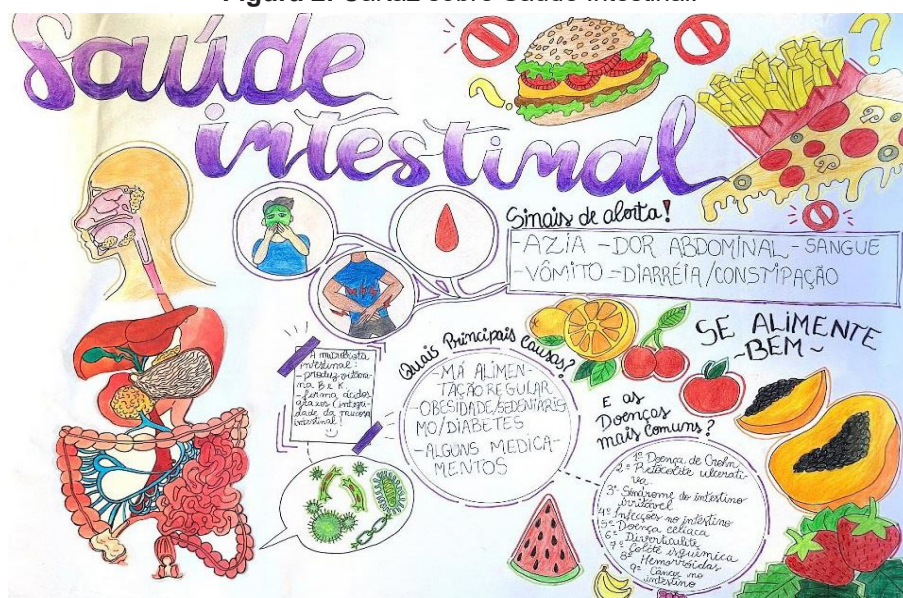 Figura 2. Cartaz sobre Saúde Intestinal.
Saúde
intestinal
Sinais de alerta!
-AZIA -DOR ABDOMINAL -SANGUE
-VÔMITO -DIARRÉIA/CONSTIPAÇÃO
SE ALIMENTE
~BEM~
A microbiota
intestinal:
-produz vitami-
na B e K.
-forma ácidos
graxos (integri-
dade da mucosa
intestinal!
Quais Principais causas?
-MÁ ALIMEN-
TAÇÃO REGULAR
-OBESIDADE/SEDENTARIS
MO/DIABETES
-ALGUNS MEDICA-
MENTOS
E as
Doenças
mais comuns?
1º Doença de Crohn
2º Retocolite ulcerati-
va
3º Síndrome do intestino
irritável
4º Infecções no intestino
5º Doença celíaca
6º Diverticulite
7º Colite isquêmica
8º Hemorróidas
9º Câncer no
intestino